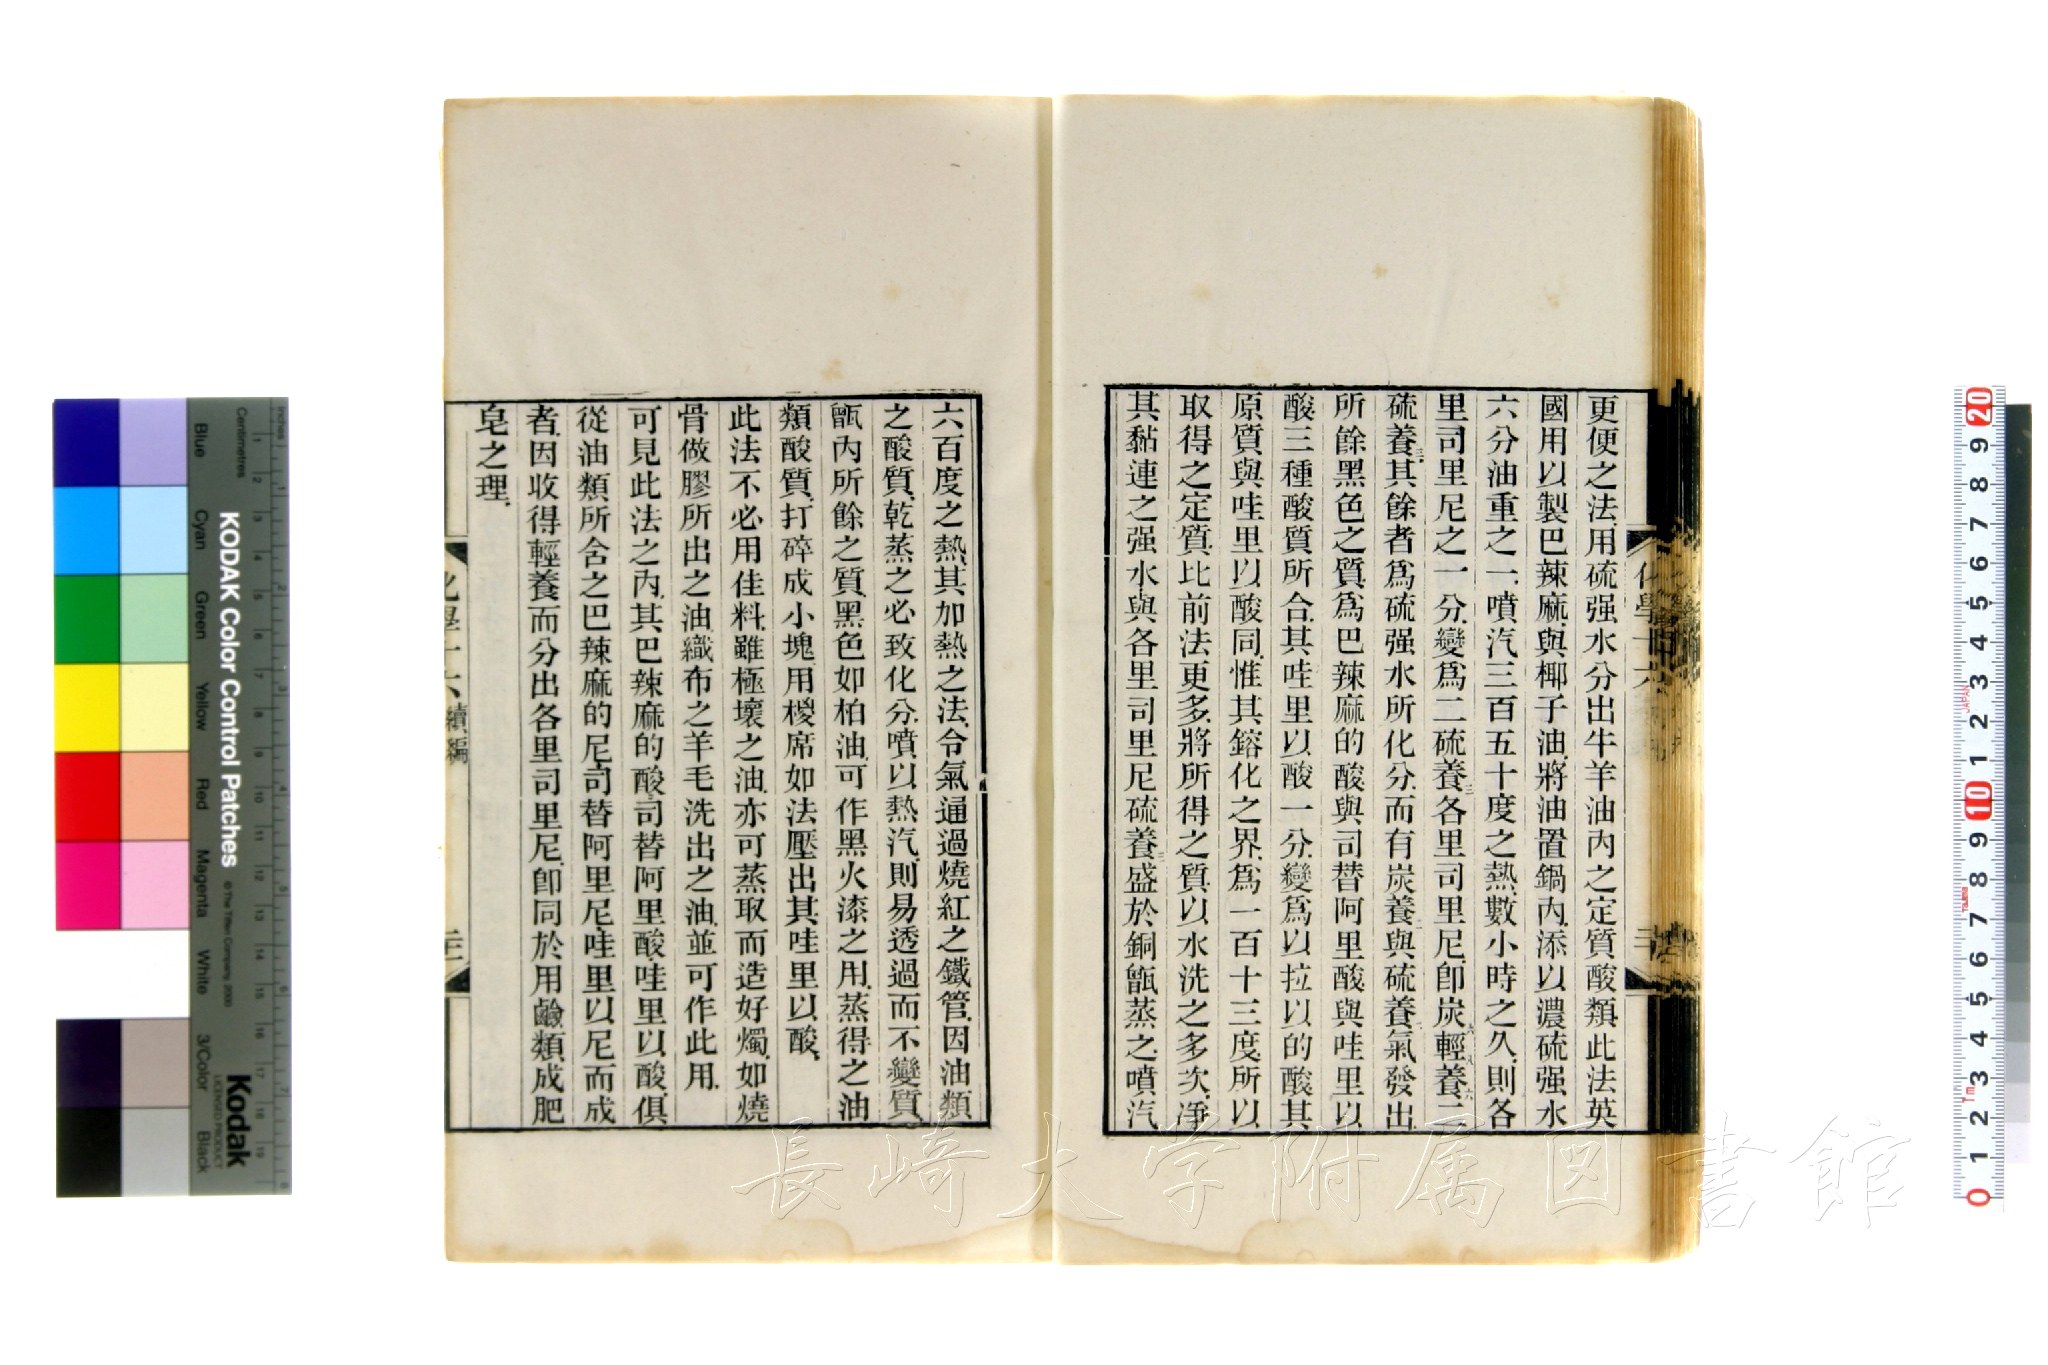 更便之法用硫强水分出牛羊油內之定質酸類此法英
國用以製巴辣麻與椰子油將油置鍋內添以濃硫强水
六分油重之一噴汽三百五十度之熱數小時之久則各
里司里尼之一分變爲二硫養三各里司里尼卽炭六輕八養六二
硫養三其餘者爲硫强水所化分而有炭養二與硫養二氣發出
所餘黑色之質爲巴辣麻的酸與司替阿里酸與哇里以
酸三種酸質所合其哇里以酸一分變爲以拉以的酸其
原質與哇里以酸同惟其鎔化之界爲一百十三度所以
取得之定質比前法更多將所得之質以水洗之多次淨
其黏連之强水與各里司里尼硫養三盛於銅甑蒸之噴汽
化學十六
六百度之熱其加熱之法令氣逼過燒紅之鐵管因油類
之酸質乾蒸之必致化分噴以熱汽則易透過而不變質
甑內所餘之質黑色如柏油可作黑火漆之用蒸得之油
類酸質打碎成小塊用椶席如法壓出其哇里以酸
此法不必用佳料雖極壞之油亦可蒸取而造好燭如燒
骨做膠所出之油織布之羊毛洗出之油並可作此用
可見此法之內其巴辣麻的酸司替阿里酸哇里以酸俱
從油類所含之巴辣麻的尼司替阿里尼哇里以尼而成
者因收得輕養而分出各里司里尼卽同於用鹼類成肥
皂之理
化學十六 續編
KODAK Color Control Patches
© The Tiffen Company, 2000
Kodak
LICENSED PRODUCT
Inches
Centimetres
Blue
Cyan
Green
Yellow
Red
Magenta
White
3/Color
Black
JAPAN
長崎大学附属図書館